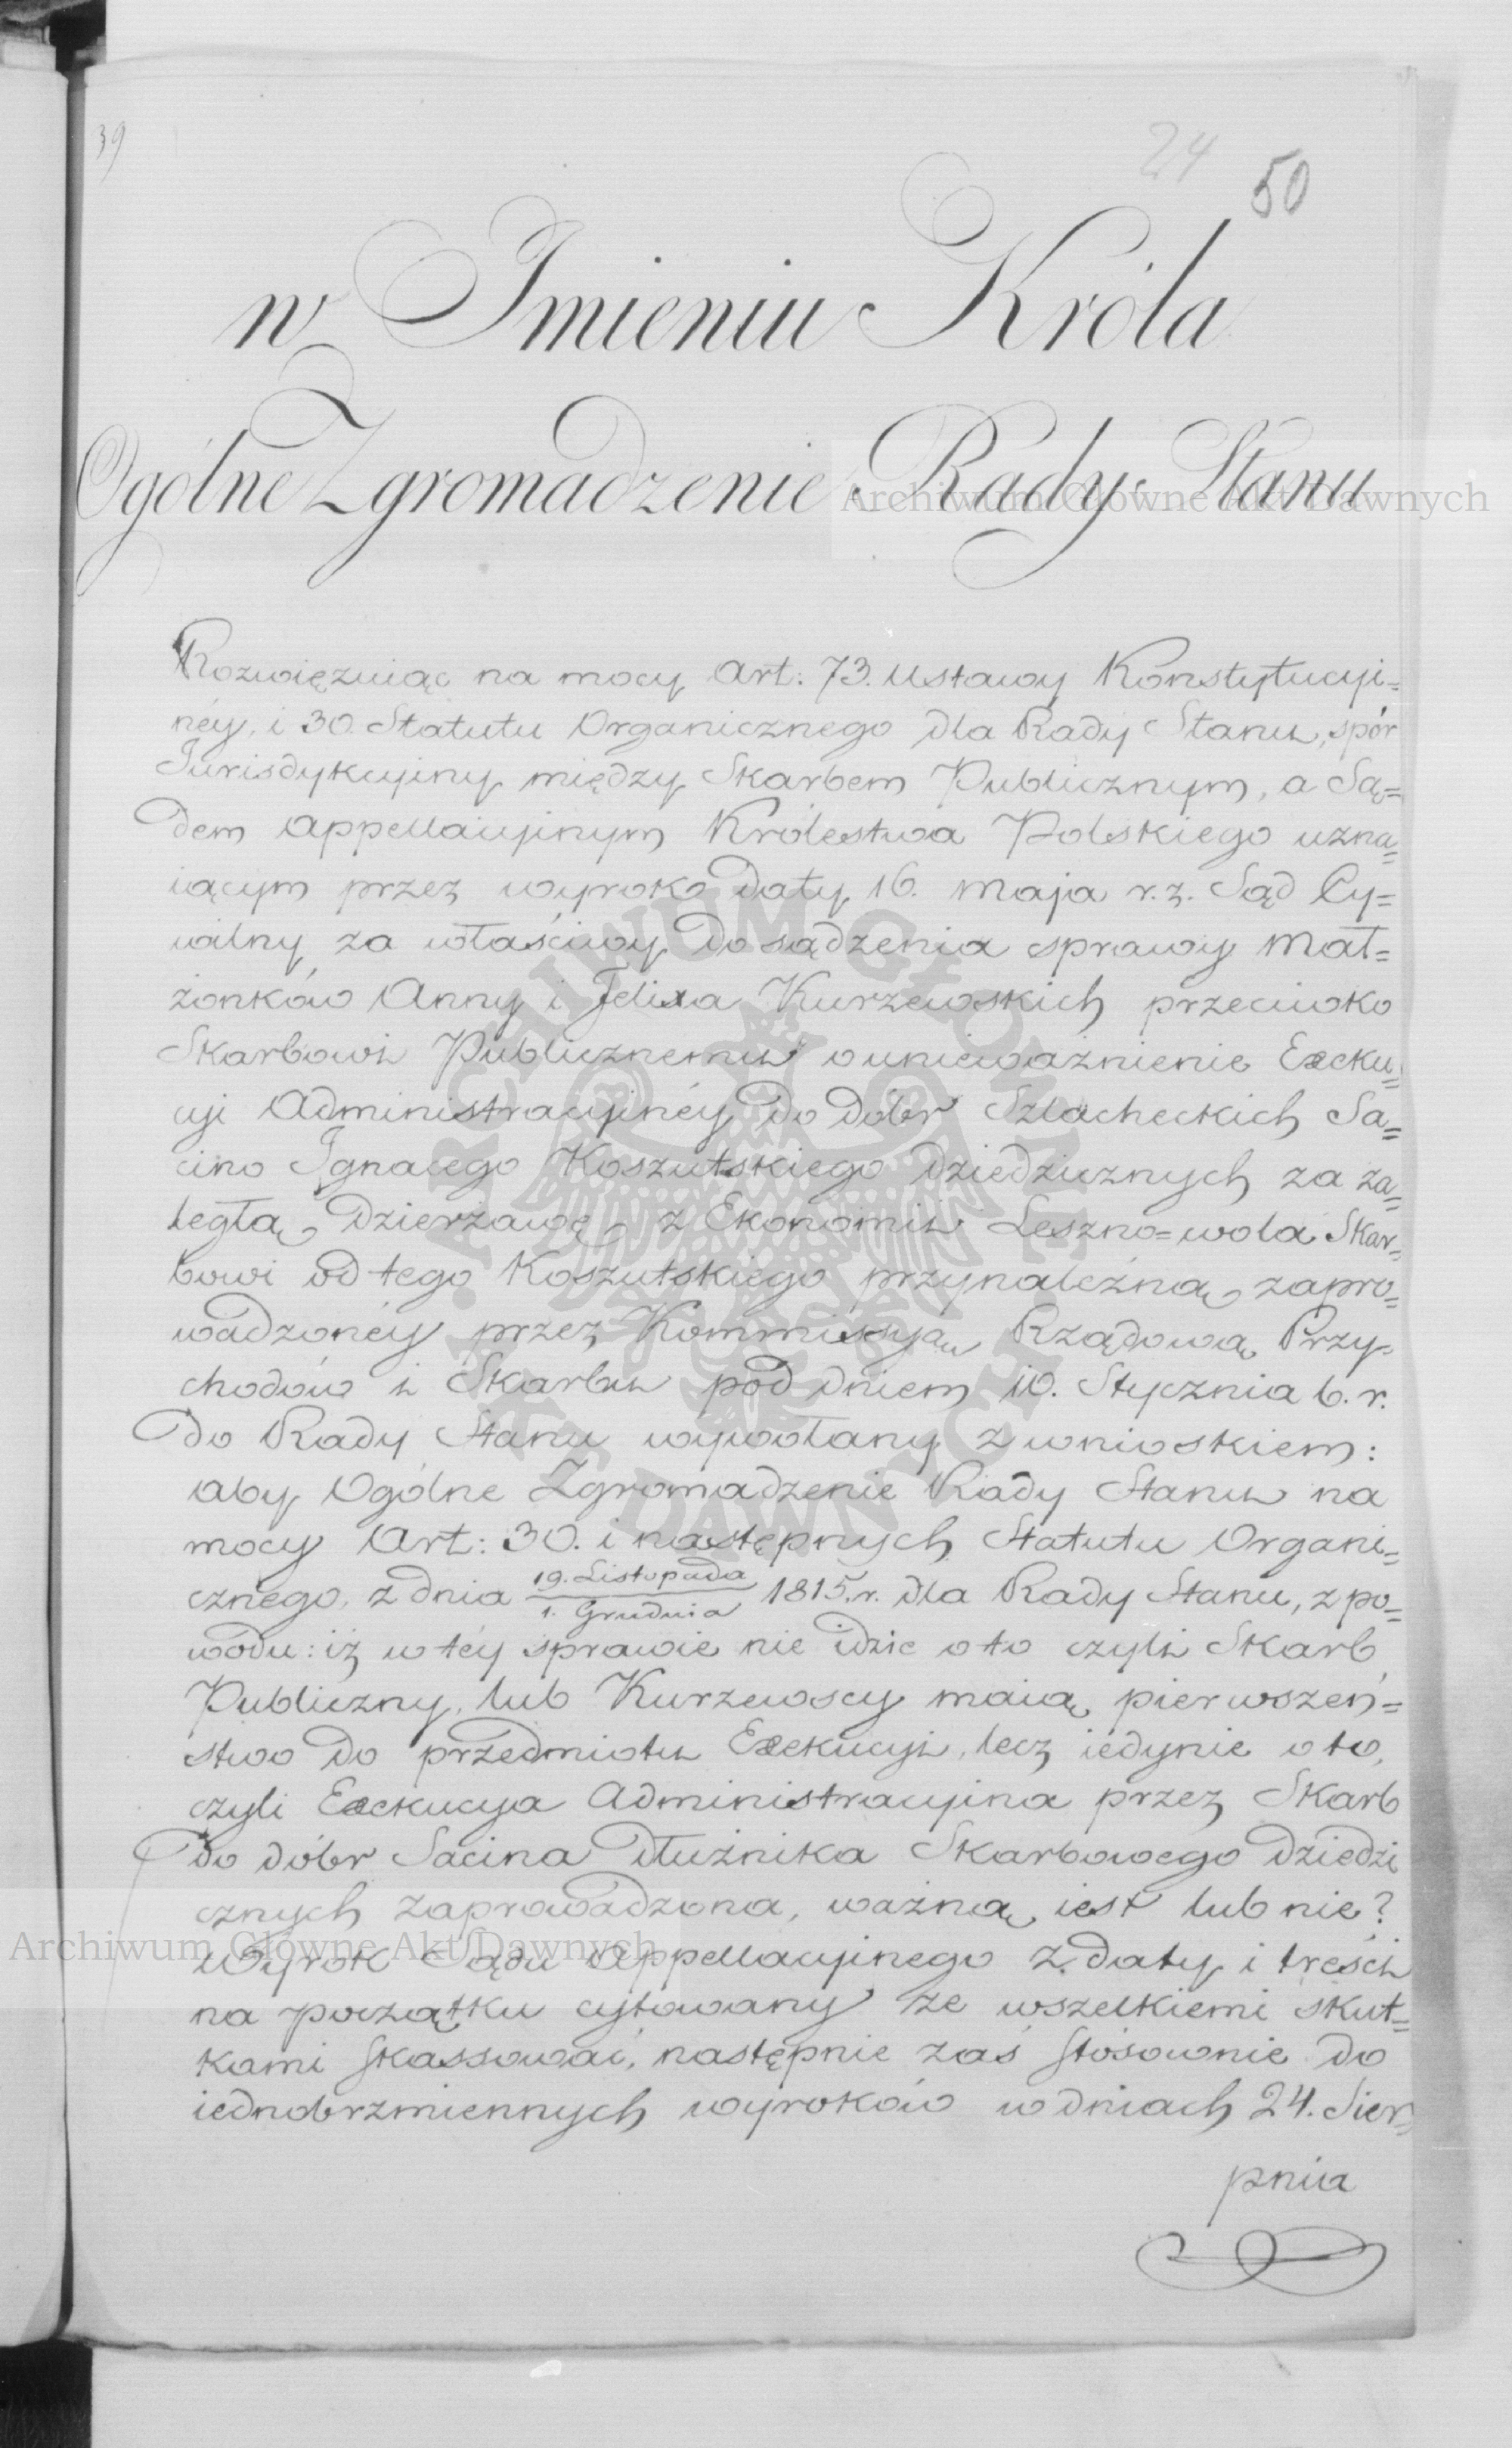 39
24
50
w Imieniu Króla
Ogólne Zgromadzenie Rady Stanu
Archiwum Główne Akt Dawnych
Rozwięzuiąc na mocy Art: 73. Ustawy Konstytucyi=
néy, i 30. Statutu Organicznego dla Rady Stanu, spór
Jurisdykcyiny między Skarbem Publicznym, a Są=
dem Appellacyinym Królestwa Polskiego uzna=
iącym przez wyrok daty 16. Maja r. z. Sąd Cy=
wilny za właściwy do sądzenia sprawy Mał=
żonków Anny i Felixa Kurzewskich przeciwko
Skarbowi Publicznemu o unieważnienie Exeku=
cyi Administracyinéy do dóbr Szlacheckich Sa=
cino Ignacego Koszutskiego dziedzicznych za za=
ległą dzierzawę z Ekonomii Leszno=wola Skar=
bowi od tego Koszutskiego przynależną zapro=
wadzonéy przez Kommissyą Rządową Przy=
chodów i Skarbu pod dniem 10. Stycznia b. r.
do Rady Stanu wywołany z wnioskiem:
aby Ogólne Zgromadzenie Rady Stanu na
mocy Art: 30. i następnych Statutu Organi=
cznego z dnia 19. Listopada / 1. Grudnia 1815. r. dla Rady Stanu, z po=
wodu: iż w téy sprawie nie idzie o to czyli Skarb
Publiczny, lub Kurzewscy maią pierwszeń=
stwo do przedmiotu Exekucyi, lecz iedynie o to,
czyli Exekucya Administracyina przez Skarb
do dóbr Sacina dłużnika Skarbowego dziedzi
cznych zaprowadzona, ważną iest lub nie?
Archiwum Główne Akt Dawnych
Wyrok Sądu Appellacyinego z daty i treści
na początku cytowany ze wszelkiemi skut=
kami skassować, następnie zaś stósownie do
iednobrzmiennych wyroków w dniach 24. Sier=
pnia
ARCHIWUM GŁÓWNE AKT DAWNYCH